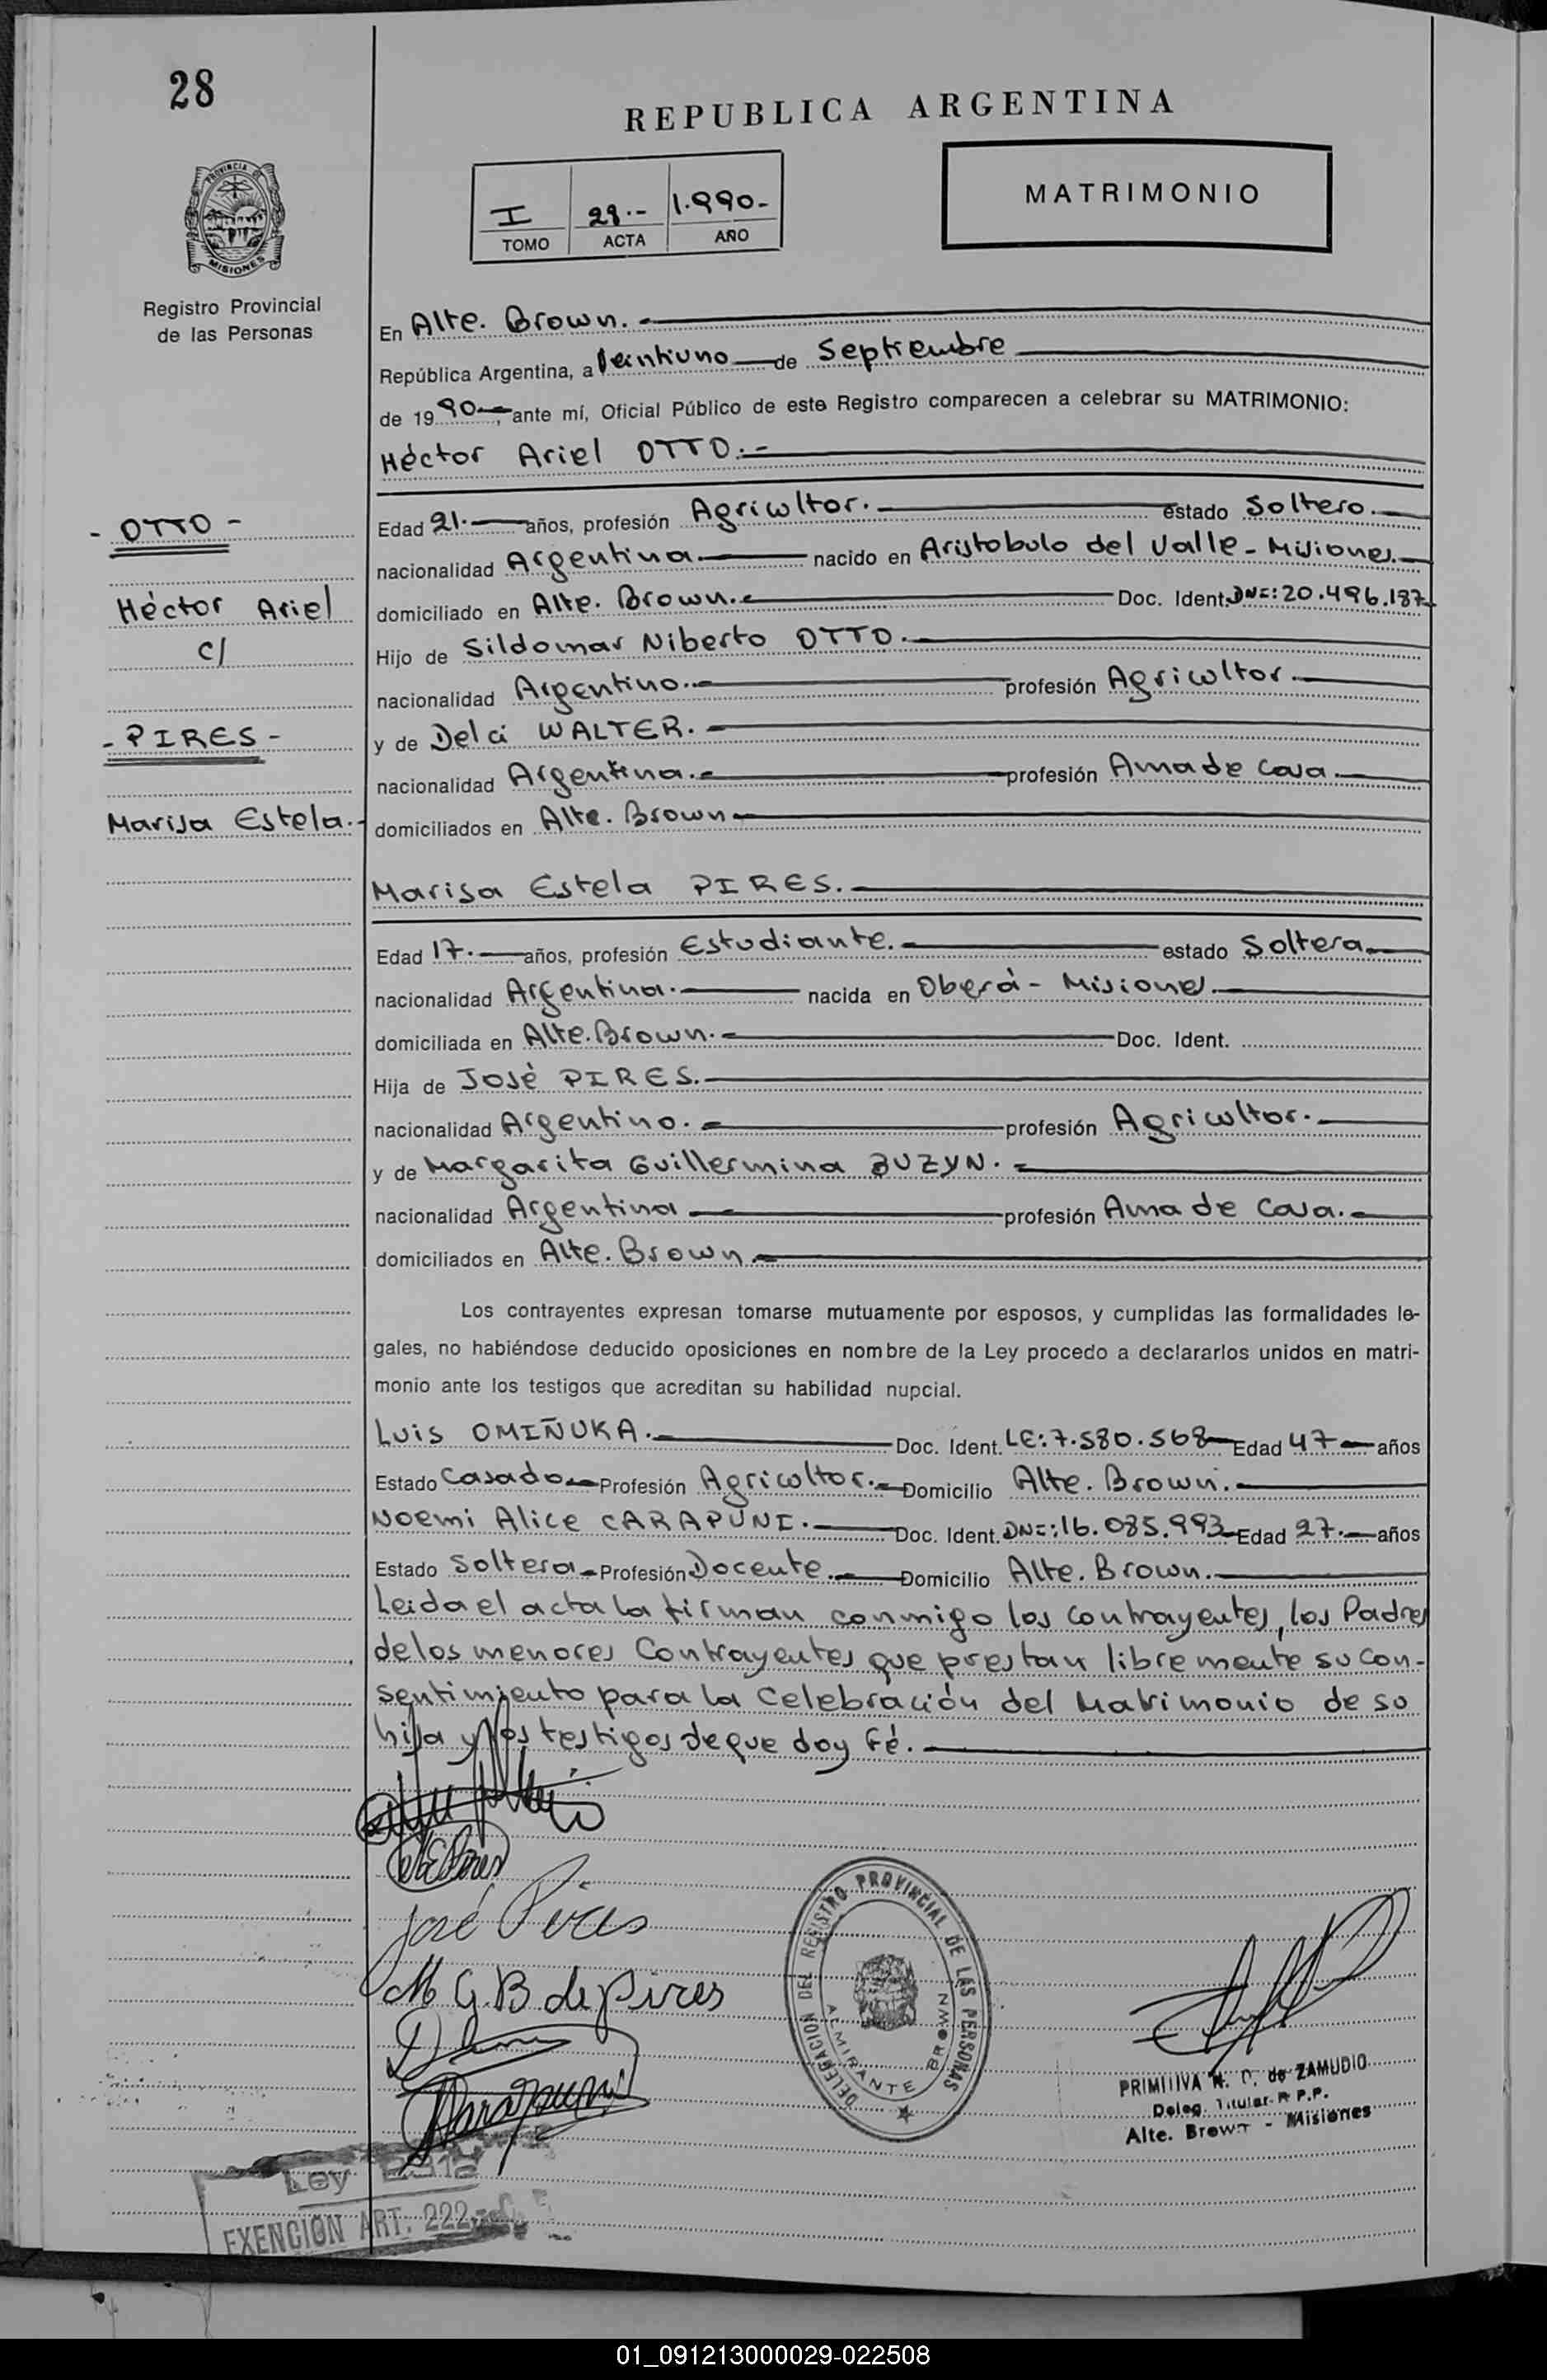 28
REPUBLICA ARGENTINA
PROVINCIA DE
MISIONES
Registro Provincial
de las Personas
I 28.- 1.990-
TOMO ACTA AÑO
MATRIMONIO
En Alte. Brown.-
República Argentina, a Veintiuno de Septiembre
de 1990, ante mí, Oficial Público de este Registro comparecen a celebrar su MATRIMONIO:
Héctor Ariel OTTO.-
- OTTO -
Héctor Ariel
c/
- PIRES -
Marisa Estela.-
Edad 21.- años, profesión Agricultor.- estado Soltero.-
nacionalidad Argentina.- nacido en Aristobulo del Valle - Misiones.-
domiciliado en Alte. Brown.- Doc. Ident. DNI: 20.496.187
Hijo de Sildomar Niberto OTTO.-
nacionalidad Argentino.- profesión Agricultor.-
y de Delci WALTER.-
nacionalidad Argentina.- profesión Ama de Casa.-
domiciliados en Alte. Brown-
Marisa Estela PIRES.-
Edad 17.- años, profesión Estudiante.- estado Soltera.-
nacionalidad Argentina.- nacida en Oberá - Misiones.-
domiciliada en Alte. Brown.- Doc. Ident.
Hija de José PIRES.-
nacionalidad Argentino.- profesión Agricultor.-
y de Margarita Guillermina BUZYN.-
nacionalidad Argentina- profesión Ama de Casa.-
domiciliados en Alte. Brown.-
Los contrayentes expresan tomarse mutuamente por esposos, y cumplidas las formalidades le-
gales, no habiéndose deducido oposiciones en nombre de la Ley procedo a declararlos unidos en matri-
monio ante los testigos que acreditan su habilidad nupcial.
Luis OMIÑUKA.- Doc. Ident. LE: 7.580.568- Edad 47- años
Estado Casado.- Profesión Agricultor.- Domicilio Alte. Brown.-
Noemi Alice CARAPUNI.- Doc. Ident. DNI: 16.085.993- Edad 27.- años
Estado Soltera- Profesión Docente.- Domicilio Alte. Brown.-
Leida el acta la firman conmigo los contrayentes, los Padres
de los menores Contrayentes que prestan libremente su con-
sentimiento para la Celebración del Matrimonio de su
hija y los testigos de que doy Fé.-
José Pires
M G. B de Pires
DELEGACION DEL REGISTRO PROVINCIAL DE LAS PERSONAS
ALMIRANTE BROWN
PRIMITIVA N. de ZAMUDIO
Deleg. Titular R.P.P.
Alte. Brown - Misiones
Ley
EXENCION ART. 222
01_091213000029-022508